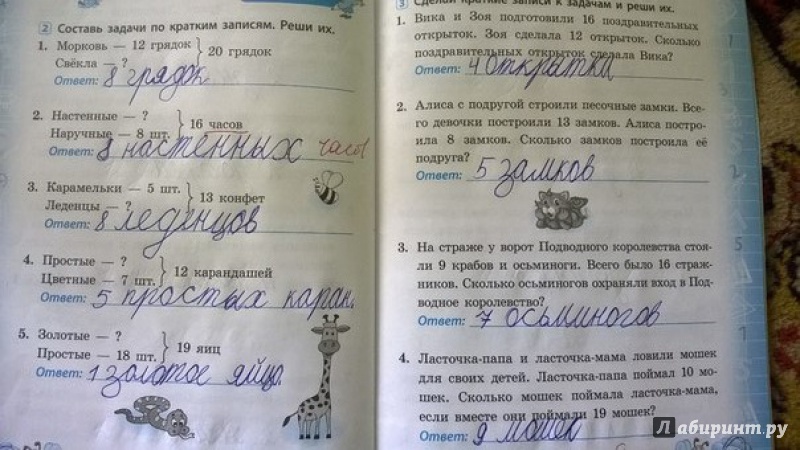 2 Составь задачи по кратким записям. Реши их.
1. Морковь — 12 грядок
Свёкла — ?
20 грядок
Ответ: 8 грядок
2. Настенные — ?
Наручные — 8 шт.
16 часов
Ответ: 8 настенных часов
3. Карамельки — 5 шт.
Леденцы — ?
13 конфет
Ответ: 8 леденцов
4. Простые — ?
Цветные — 7 шт.
12 карандашей
Ответ: 5 простых каран.
5. Золотые — ?
Простые — 18 шт.
19 яиц
Ответ: 1 золотое яйцо.
3 Сделай краткие записи к задачам и реши их.
1. Вика и Зоя подготовили 16 поздравительных
открыток. Зоя сделала 12 открыток. Сколько
поздравительных открыток сделала Вика?
Ответ: 4 открытки
2. Алиса с подругой строили песочные замки. Все-
го девочки построили 13 замков. Алиса постро-
ила 8 замков. Сколько замков построила её
подруга?
Ответ: 5 замков
3. На страже у ворот Подводного королевства стоя-
ли 9 крабов и осьминоги. Всего было 16 страж-
ников. Сколько осьминогов охраняли вход в Под-
водное королевство?
Ответ: 7 осьминогов
4. Ласточка-папа и ласточка-мама ловили мошек
для своих детей. Ласточка-папа поймал 10 мо-
шек. Сколько мошек поймала ласточка-мама,
если вместе они поймали 19 мошек?
Ответ: 9 мошек
Лабиринт.ру